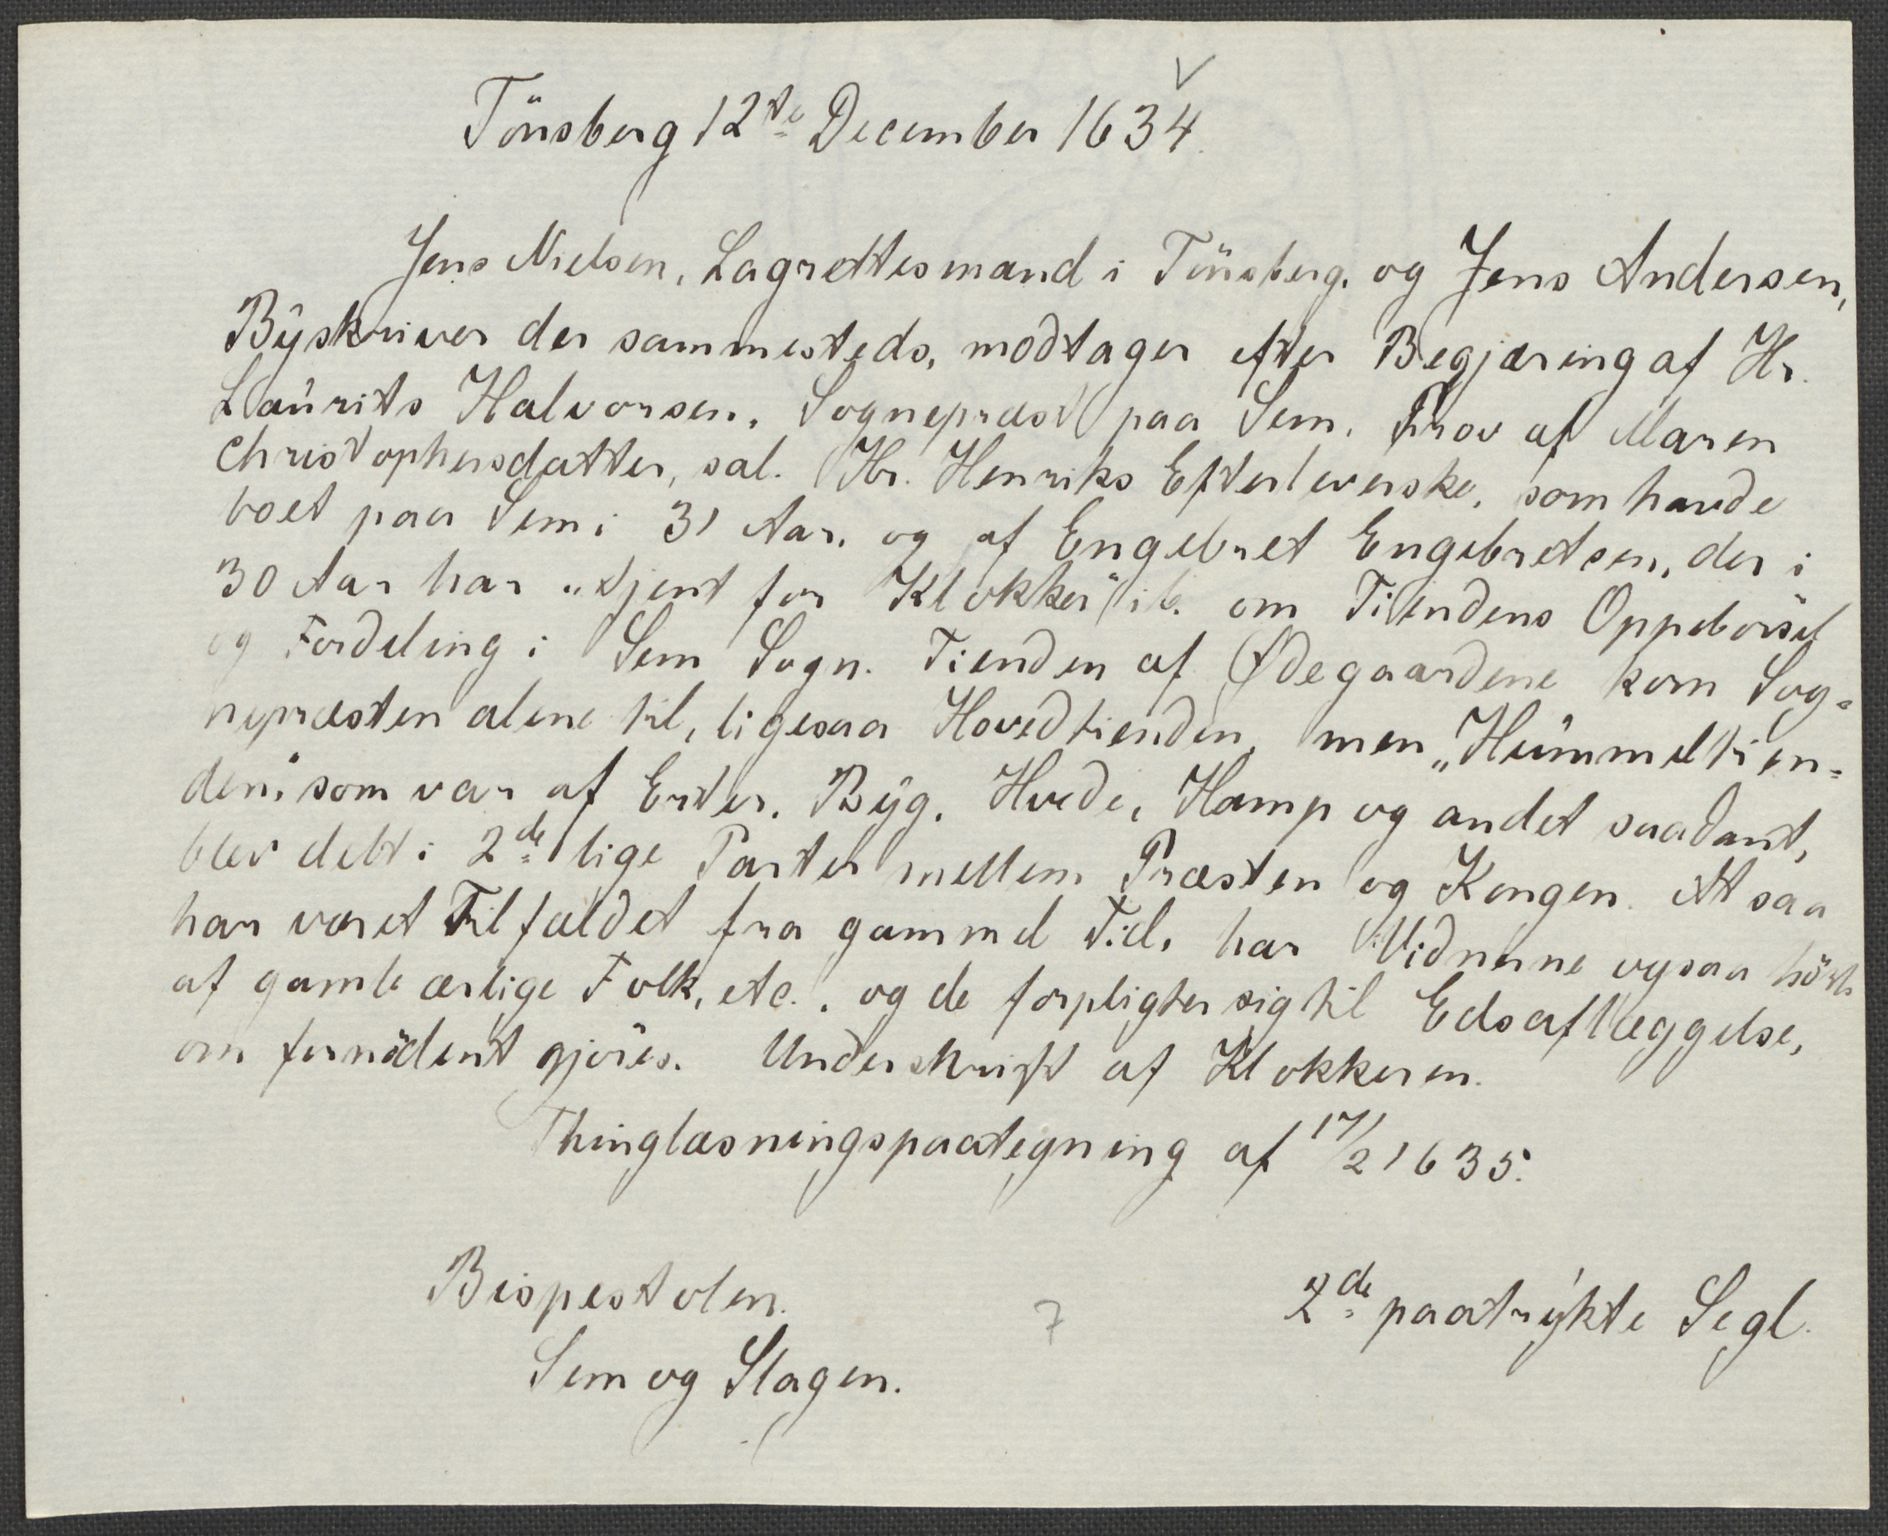 Tönsberg 12te December 1634.
Jens Nielsen, Lagrettesmand i Tönsberg, og Jens Andersen,
Byskriver der sammesteds, modtager efter Begjæring af Hr.
Laurits Halvorsen, Sognepræst paa Sem, Prov af Maren
Christophersdatter, sal. Hr. Henriks Efterleverske, som havde
boet paa Sem i 31 Aar, og af Engebret Engebretsen, der i
30 Aar har „tjent for Klokker" ib. om Tiendens Oppebörsel
og Fordeling i Sem Sogn. Tienden af Ødegaardene kom Sog-
nepræsten alene til, ligesaa Hovedtienden, men „Hummeltien-
den", som var af Erter, Byg, Hvede, Hamp og andet saadant,
blev delt i 2de lige Parter mellem Præsten og Kongen. At saa
har været Tilfældet fra gammel Tid, har Vidnerne ogsaa hört
af gamle ærlige Folk, etc., og de forpligter sig til Edsaflæggelse,
om fornödent gjöres. Underskrift af Klokkeren.
Thinglæsningspaategning af 17/2 1635.
Bispestolen.
2de paatrykte Segl.
7
Sem og Slagen.